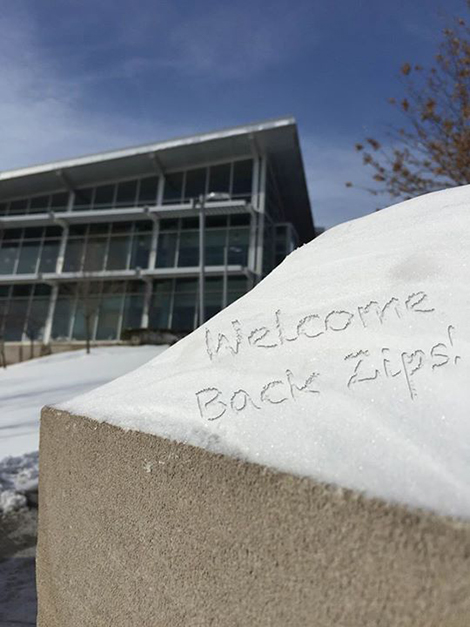 Welcome
Back Zips!